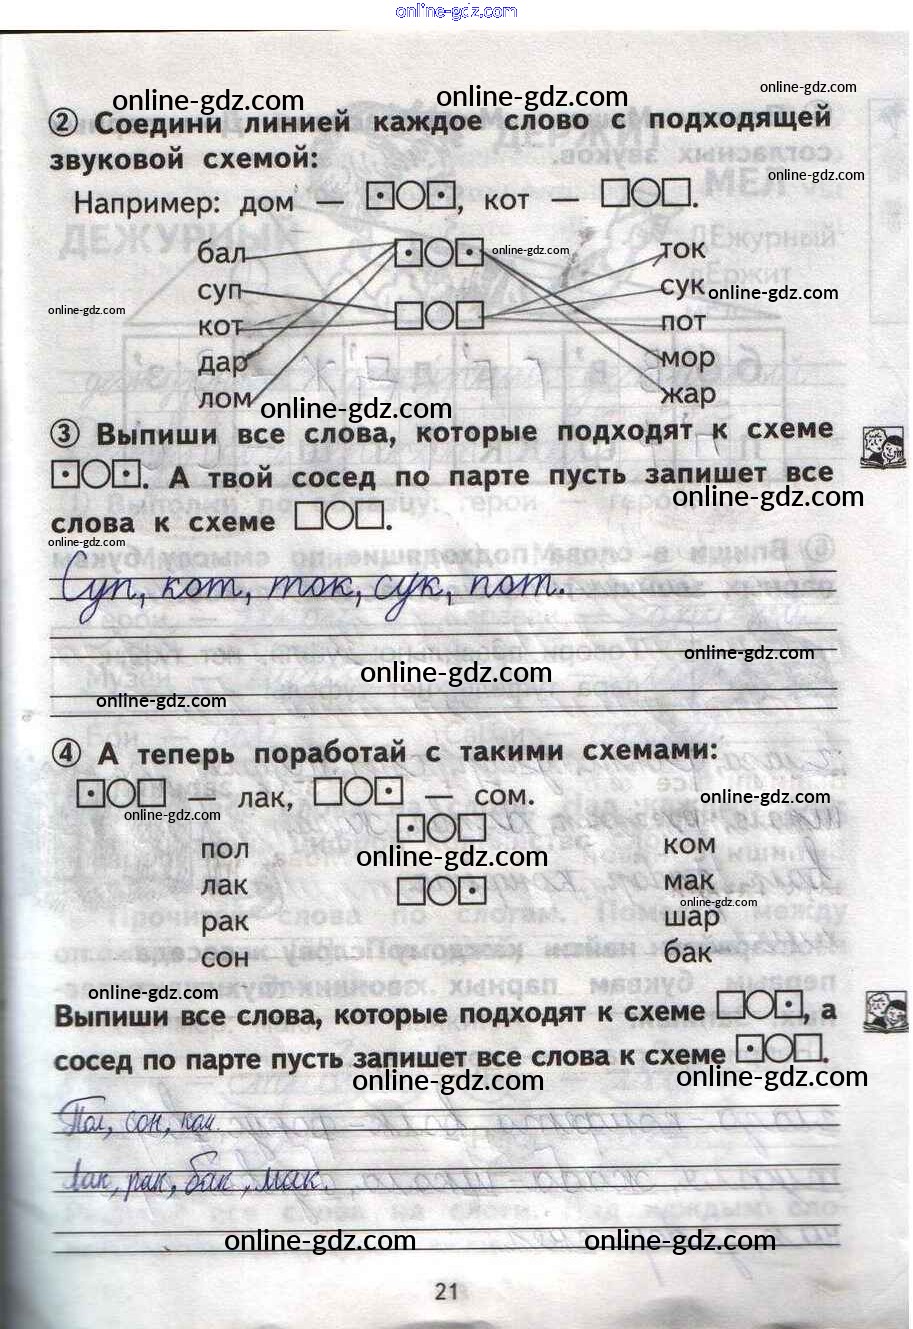 online-gdz.com
online-gdz.com online-gdz.com online-gdz.com
2 Соедини линией каждое слово с подходящей
звуковой схемой:
online-gdz.com
Например: дом — , кот — .
бал online-gdz.com ток
суп сук online-gdz.com
online-gdz.com
кот пот
дар мор
лом жар
online-gdz.com
3 Выпиши все слова, которые подходят к схеме
. А твой сосед по парте пусть запишет все
online-gdz.com
слова к схеме .
online-gdz.com
Суп, кот, ток, сук, пот.
online-gdz.com
online-gdz.com
online-gdz.com
4 А теперь поработай с такими схемами:
— лак, — сом. online-gdz.com
online-gdz.com
пол online-gdz.com ком
лак мак
online-gdz.com
рак шар
сон бак
online-gdz.com
Выпиши все слова, которые подходят к схеме , а
сосед по парте пусть запишет все слова к схеме .
online-gdz.com online-gdz.com
Пол, сон, ком.
Лак, рак, бак, мак.
online-gdz.com online-gdz.com
21